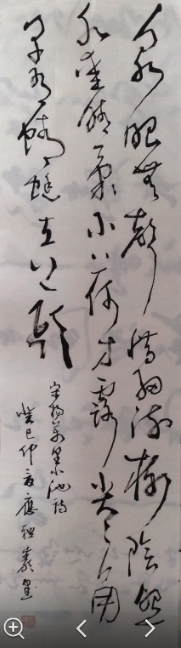 泉眼無聲惜細流樹陰照
水愛晴柔小荷才露尖尖角
早有蜻蜓立上頭
宋楊萬里小池詩
癸巳仲夏